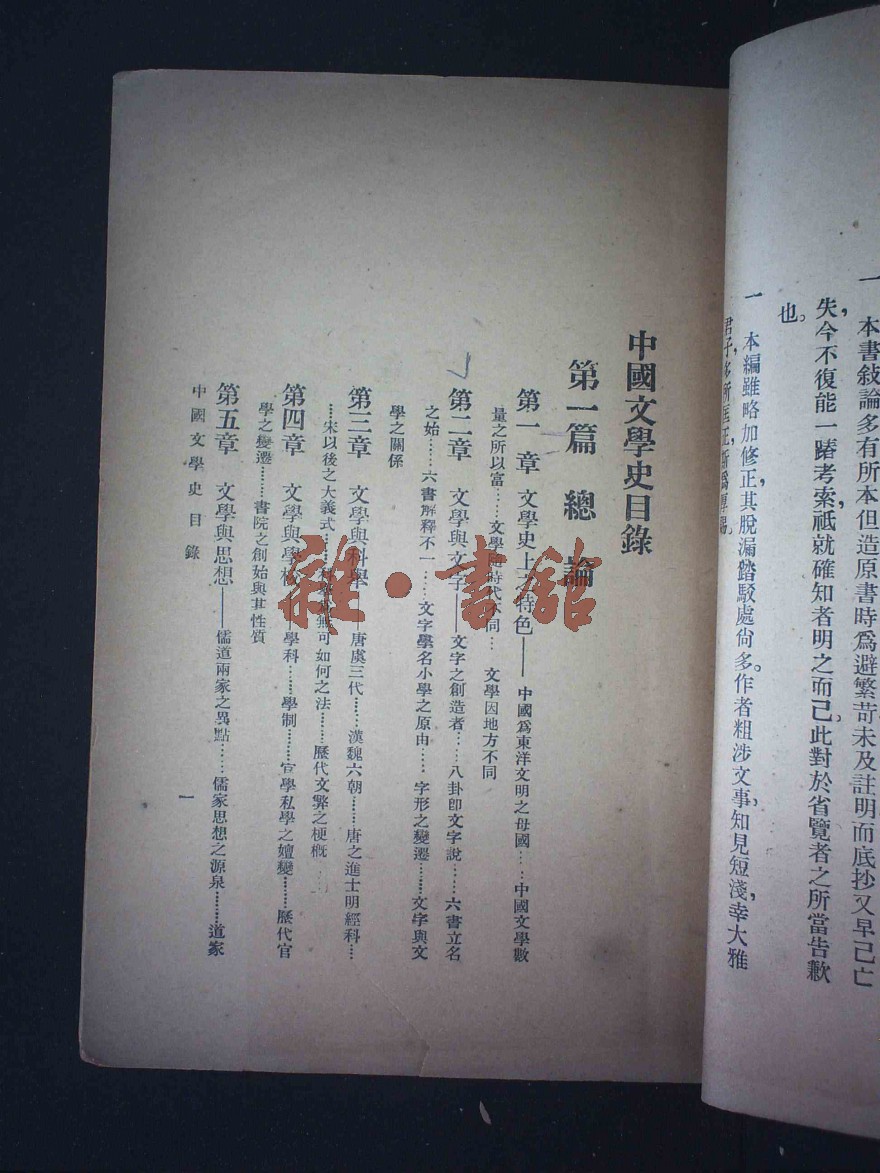 一　本書敍論多有所本但造原書時爲避繁苛未及註明而底抄又早已亡
失，今不復能一一考索祗就確知者明之而已，此對於省覽者之所當告歉
也。
一　本編雖略加修正，其脫漏踳駁處尙多。作者粗涉文事，知見短淺，幸大雅
君子，多所匡正，
中國文學史目錄
第一篇　總論
第一章　文學史上之特色——中國爲東洋文明之母國……中國文學數
量之所以富……文學隨時代不同……文學因地方不同
第二章　文學與文字——文字之創造者……八卦卽文字說……六書立名
之始……六書解釋不一……文字學名小學之原由……字形之變遷……文字與文
學之關係
第三章　文學與科舉——唐虞三代……漢魏六朝……唐之進士明經科……
……宋以後之大義式……無可如何之法……歷代文弊之梗概……
第四章　文學與學校——學科……學制……官學私學之嬗變……歷代官
學之變遷……書院之創始與其性質
第五章　文學與思想——儒道兩家之異點……儒家思想之源泉……道家
中國文學史目錄
一
雜·書館